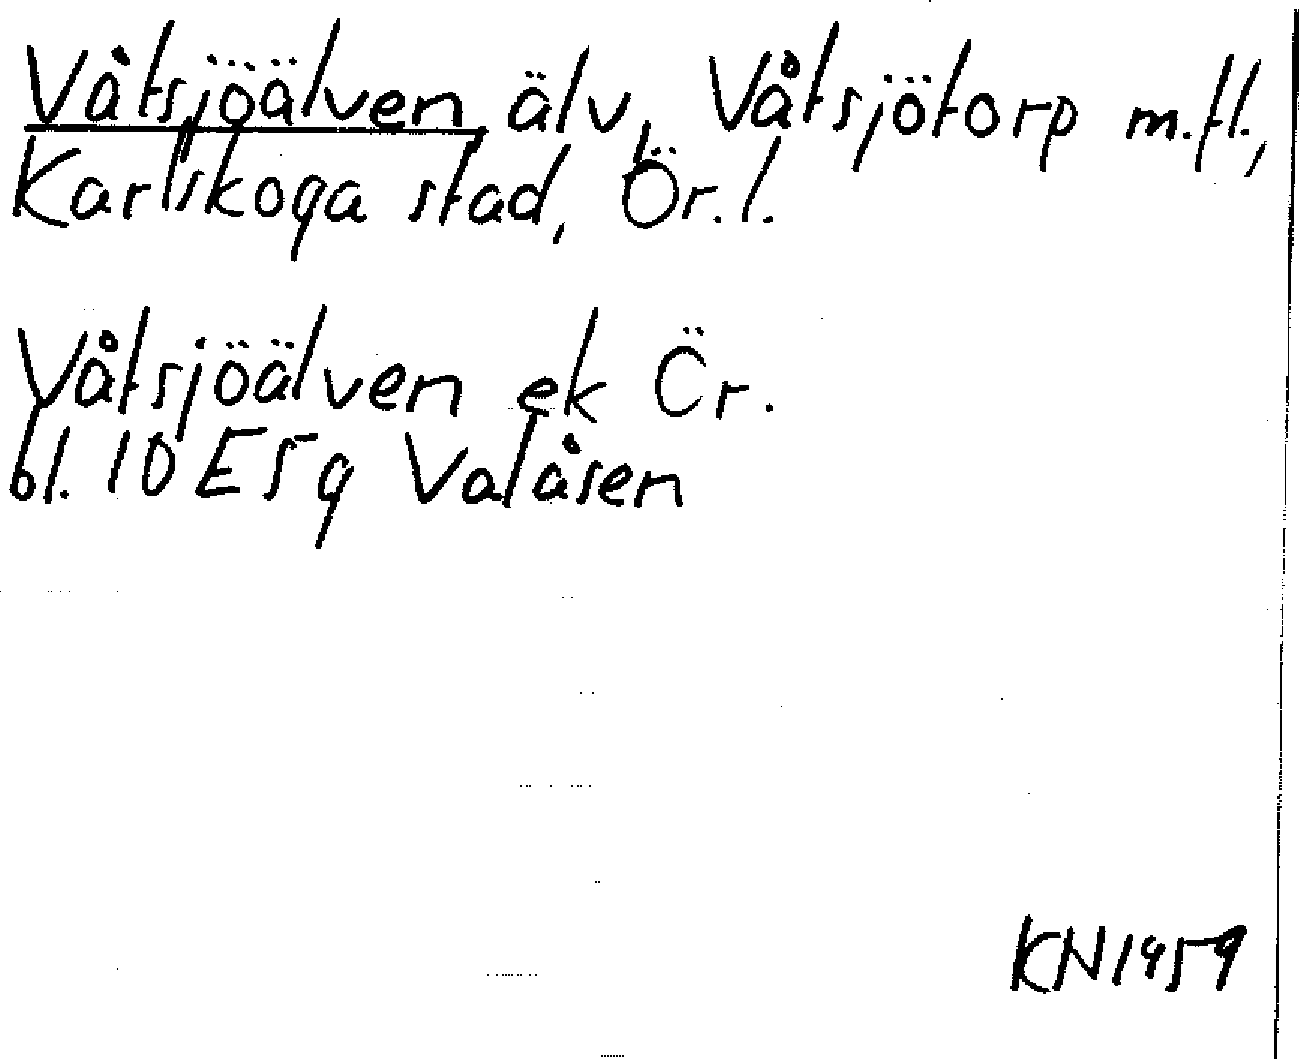 Våtsjöälven älv, Våtsjötorp m.fl.,
Karlskoga stad, Ör.l.
Våtsjöälven ek Ör.
bl. 10E5g Valåsen
KN1959